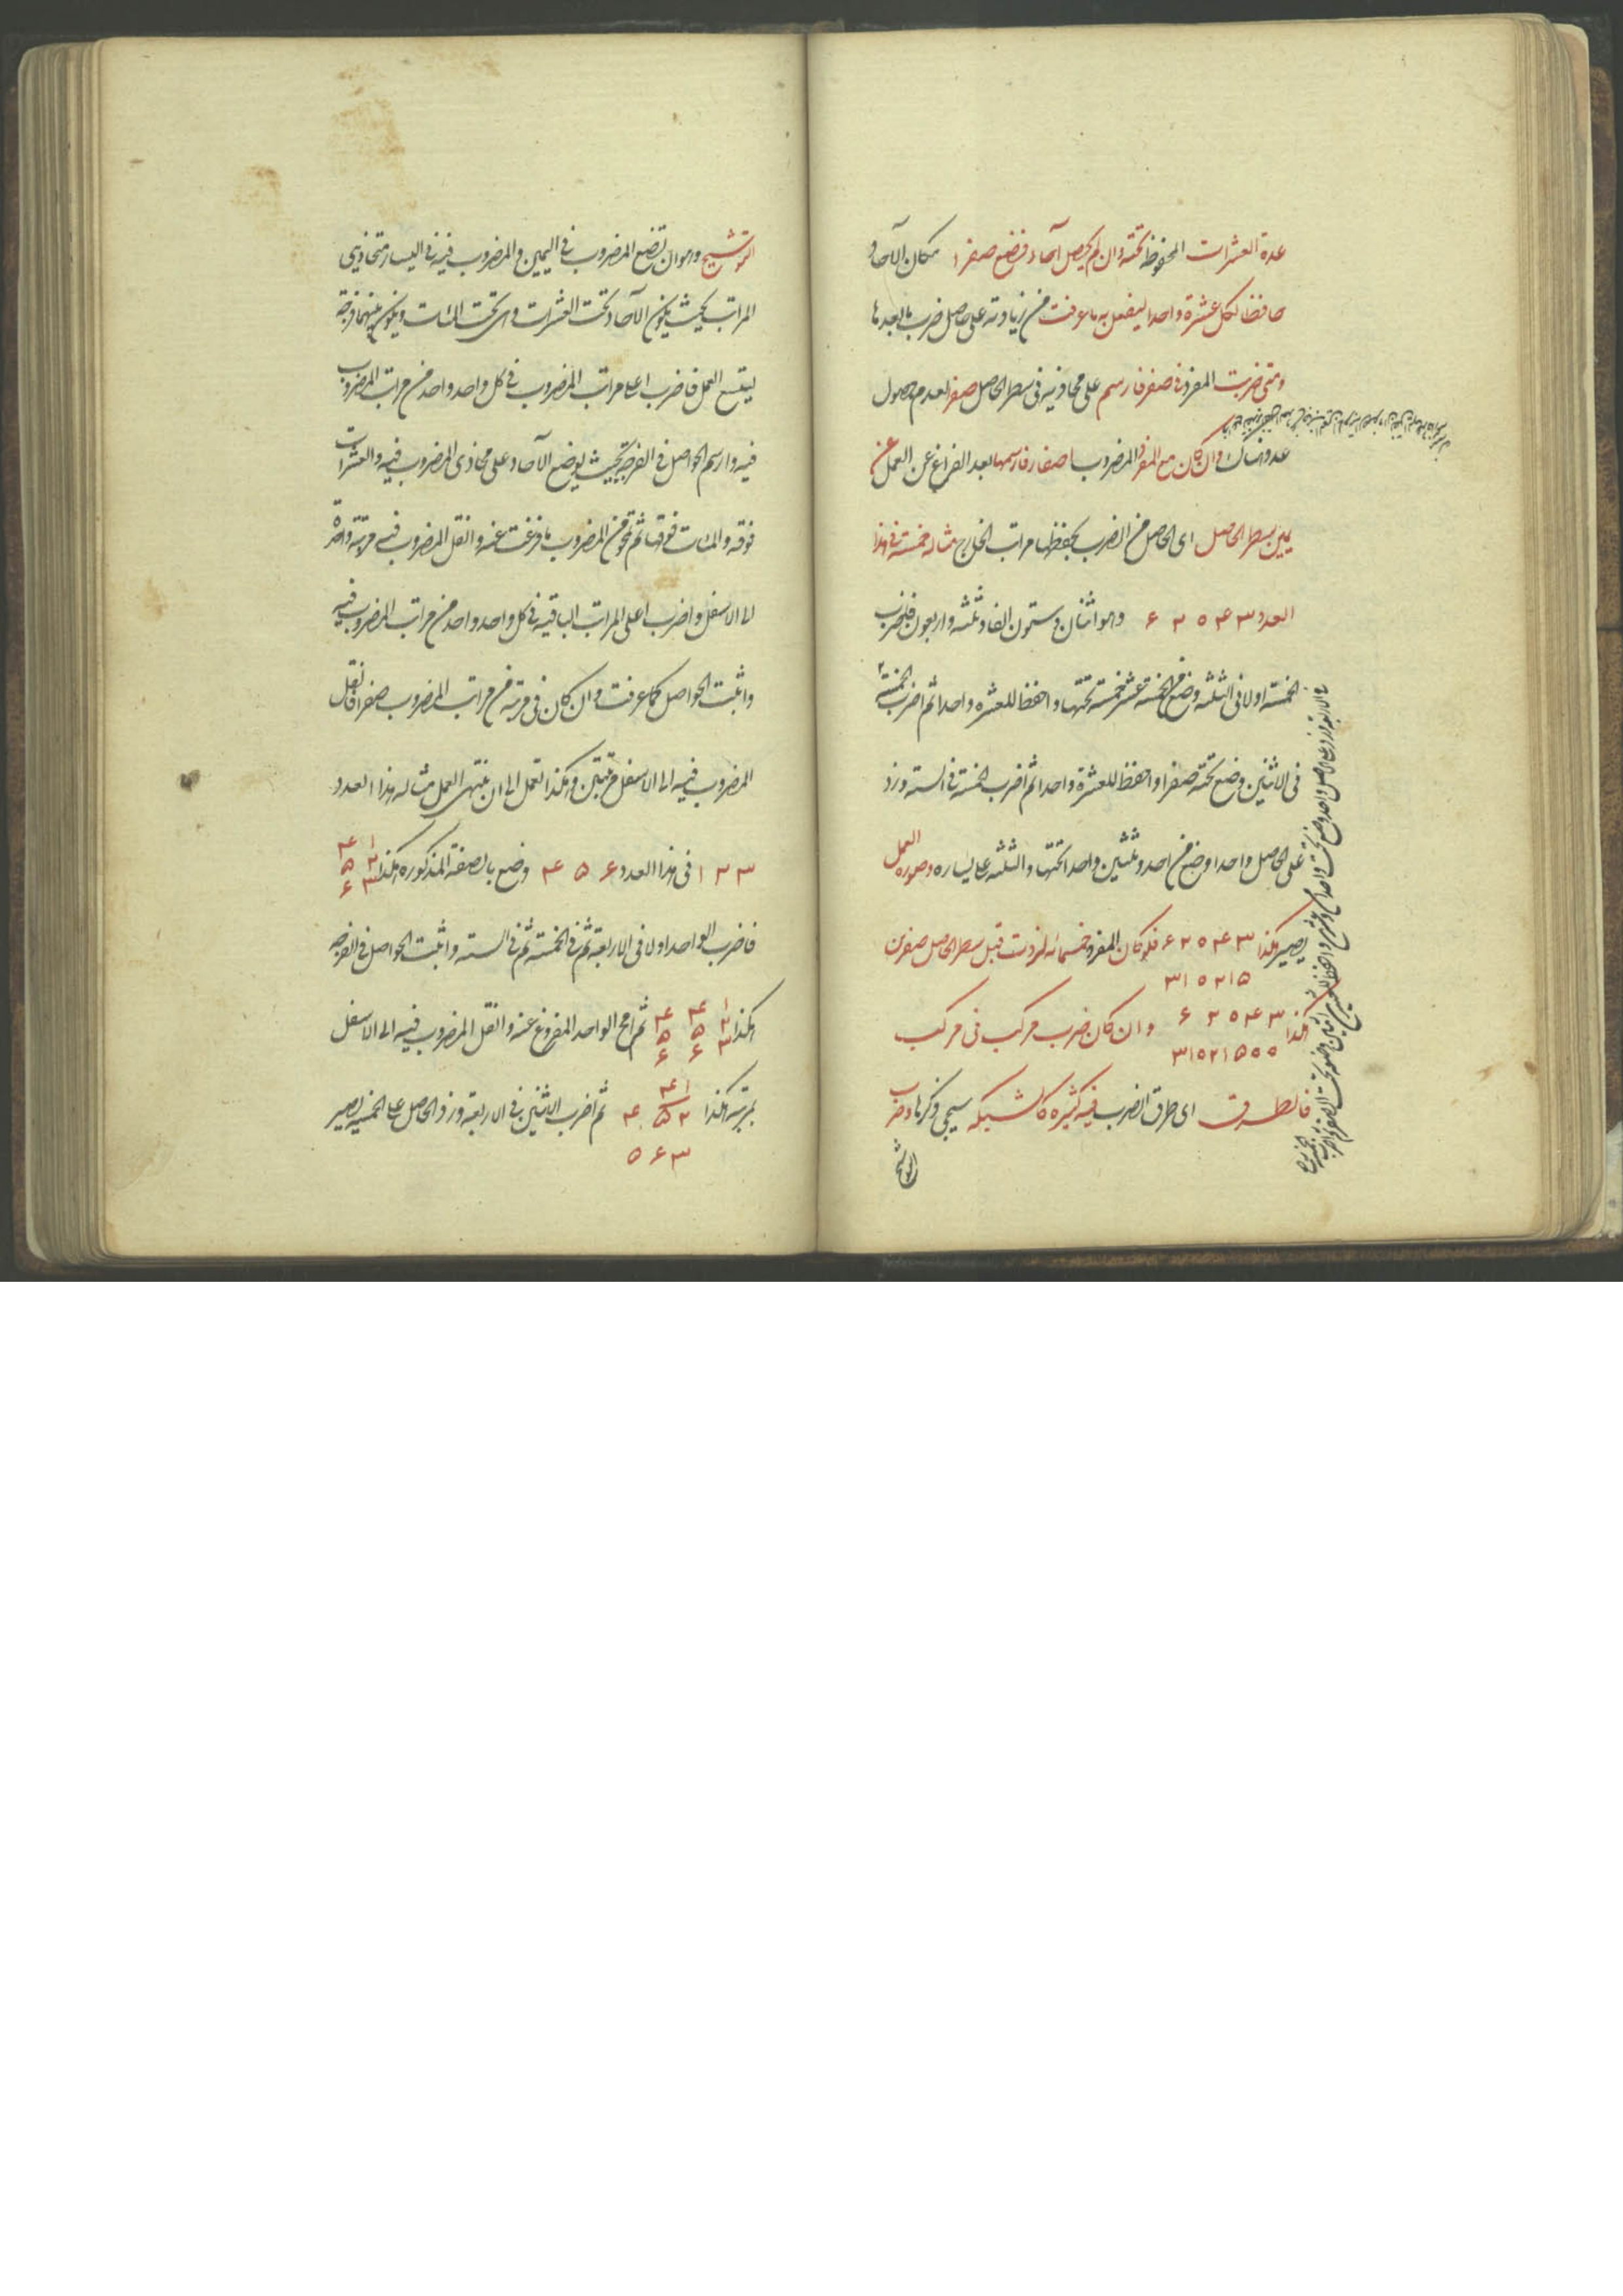 عدة العشرات المحفوظة تحته وان لم يحصل آحاد فضع صفرا مكان الآحاد
حافظا لكل عشرة واحدا ليفعل به ما عرفت من زيادته على حاصل ضرب ما بعدها
ومتى ضربت المفرد في صفر فارسم على محاذيه في سطر الحاصل صفر لعدم حصول
عدد هناك وان كان مع المفرد المضروب اصفار فارسمها بعد الفراغ عن العمل عن
يمين سطر الحاصل اى الحاصل من الضرب بحفظها مراتب الخارج مثاله خمسة في هذا
العدد ۶۲۵۴۳ وهو اثنان وستون الفا وثلثه واربعون فلنضرب
الخمسة اولا فى الثلثه وضع من الخمسة عشر خمسة تحتها واحفظ للعشره واحدا ثم اضرب الخمسة
فى الاثنين وضع تحته صفرا واحفظ للعشرة واحدا ثم اضرب الخمسة فى السته وزد
على الحاصل واحدا وضع من احد وثلثين واحدا تحتها والثلثه على يساره وصوره العمل
يصير هكذا ۶۲۵۴۳ فلو كان المفرد خمسمائه لزدت قبل سطر الحاصل صفرين
۳۱۵۲۱۵
هكذا ۶۲۵۴۳ وان كان ضرب مركب فى مركب
۳۱۵۲۱۵۰۰
فالطرق اى طرق الضرب فيه كثيره كالشبكه سيجى ذكرها وضرب
التوشيح
التوشيح وهو ان تضع المضروب فى اليمين والمضروب فيه فى اليسار متحاذيى
المراتب بحيث يكون الآحاد تحت العشرات وهى تحت المئات ويكون بينهما فرجة
ليتسع العمل فاضرب اعلا مراتب المضروب فى كل واحد واحد من مراتب المضروب
فيه وارسم الحواصل فى الفرجة بحيث يوضع الآحاد على محاذى المضروب فيه والعشرات
فوقه والمئات فوقها ثم تمحو من المضروب ما فرغت عنه وانقل المضروب فيه مرتبة واحدة
الى الاسفل واضرب اعلى المراتب الباقيه فى كل واحد واحد من مراتب المضروب فيه
واثبت الحواصل كما عرفت وان كان فى مرتبه من مراتب المضروب صفر فانقل
المضروب فيه الى الاسفل مرتبتين وهكذا تعمل الى ان ينتهى العمل مثاله هذا العدد
۱۲۳ فى هذا العدد ۴۵۶ وضع بالصفة المذكوره هكذا ۱ ۴
۲ ۵
۳ ۶
فاضرب الواحد اولا فى الاربعة ثم فى الخمسة ثم فى الستة واثبت الحواصل فى الفرجه
هكذا ۱ ۴ ۴ ثم امح الواحد المفروغ عنه وانقل المضروب فيه الى الاسفل
۲ ۵ ۵
۳ ۶ ۶
بمرتبه هكذا ۲ ۵ ۴ ثم اضرب الاثنين فى الاربعة وزد الحاصل على الخمسه يصير
۳ ۶ ۵